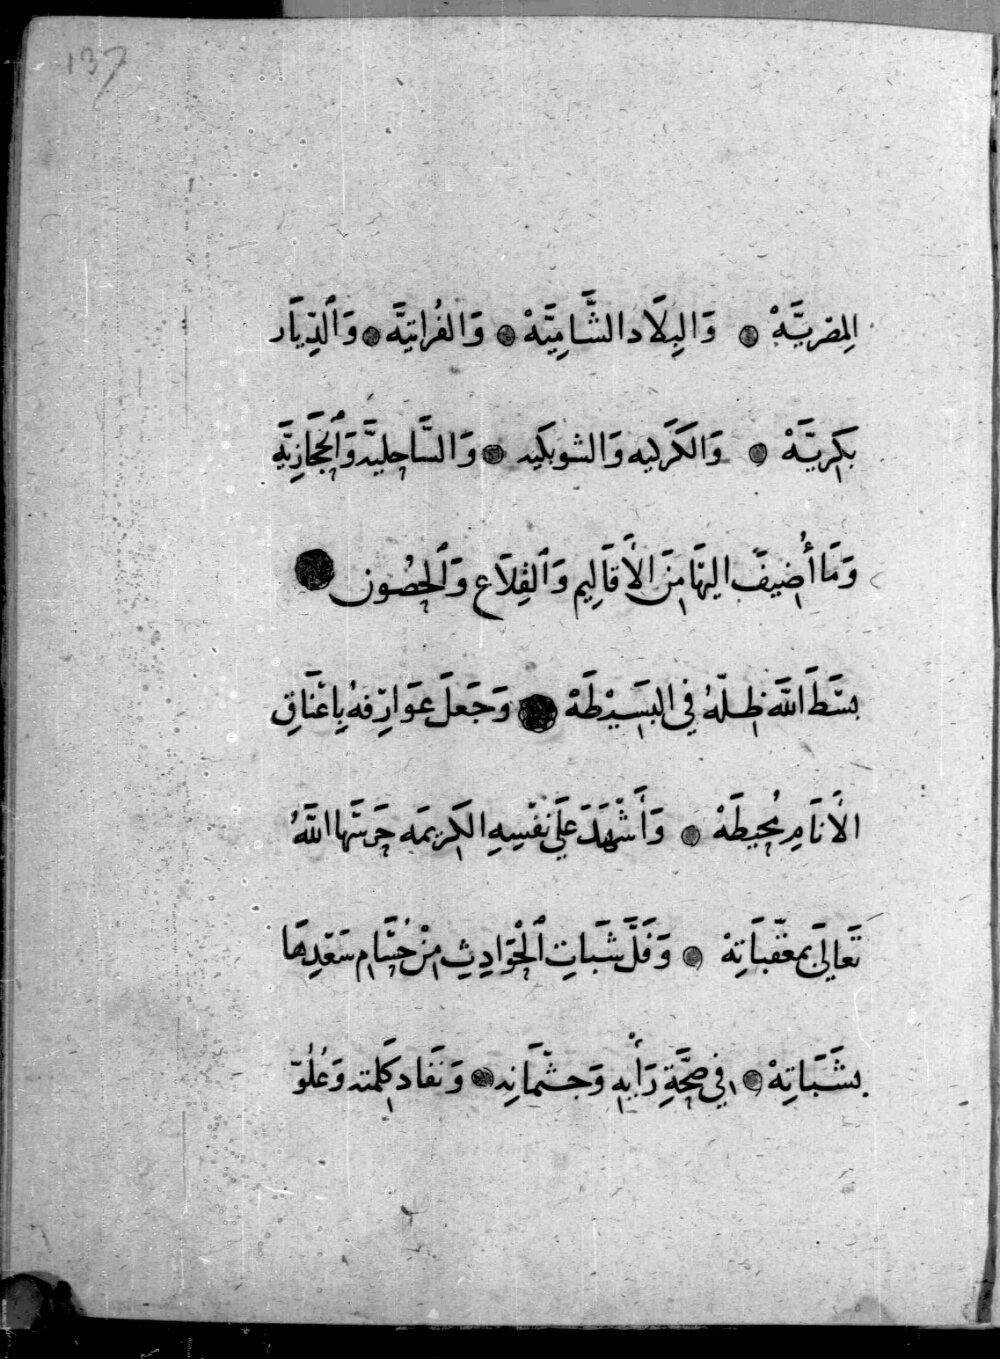 137
المِصْرِيَّةْ ۞ وَالبِلَاد الشَّامِيَّةْ ۞ وَالفُرَاتِيَّة ۞ وَالدِّيَار
بَكْرِيَّةْ ۞ وَالكَرَكيه وَالشوبَكيه ۞ وَالسَّاحِليَّة وَالحِجَازِيَّةِ
وَمَا أُضِيفَ اليهَا مِنَ الأَقَالِيم وَالقِلَاع وَالحُصُون ۞
بسَطَ اللَّه ظِلّهُ فِي البَسِيْطَةْ ۞ وَجَعَلَ عَوَارِفهُ بِاعْنَاقِ
الأَنَامِ مُحِيطَةْ ۞ وَأَشْهَدَ عَلَى نَفْسِهِ الكَرِيمَه حَرسَهَا اللَّهُ
تَعَالَى بِمعَقِّبَاتِهْ ۞ وَفَلَّ شَبَاتِ الحَوَادِثِ مِنْ حُسَام سَعْدِهَا
بشَبَاتِهْ ۞ فِي صِحَّةِ رَأْيِهِ وَجثْمَانِه ۞ وَنَفَاد كَلِمته وَعُلُوّ